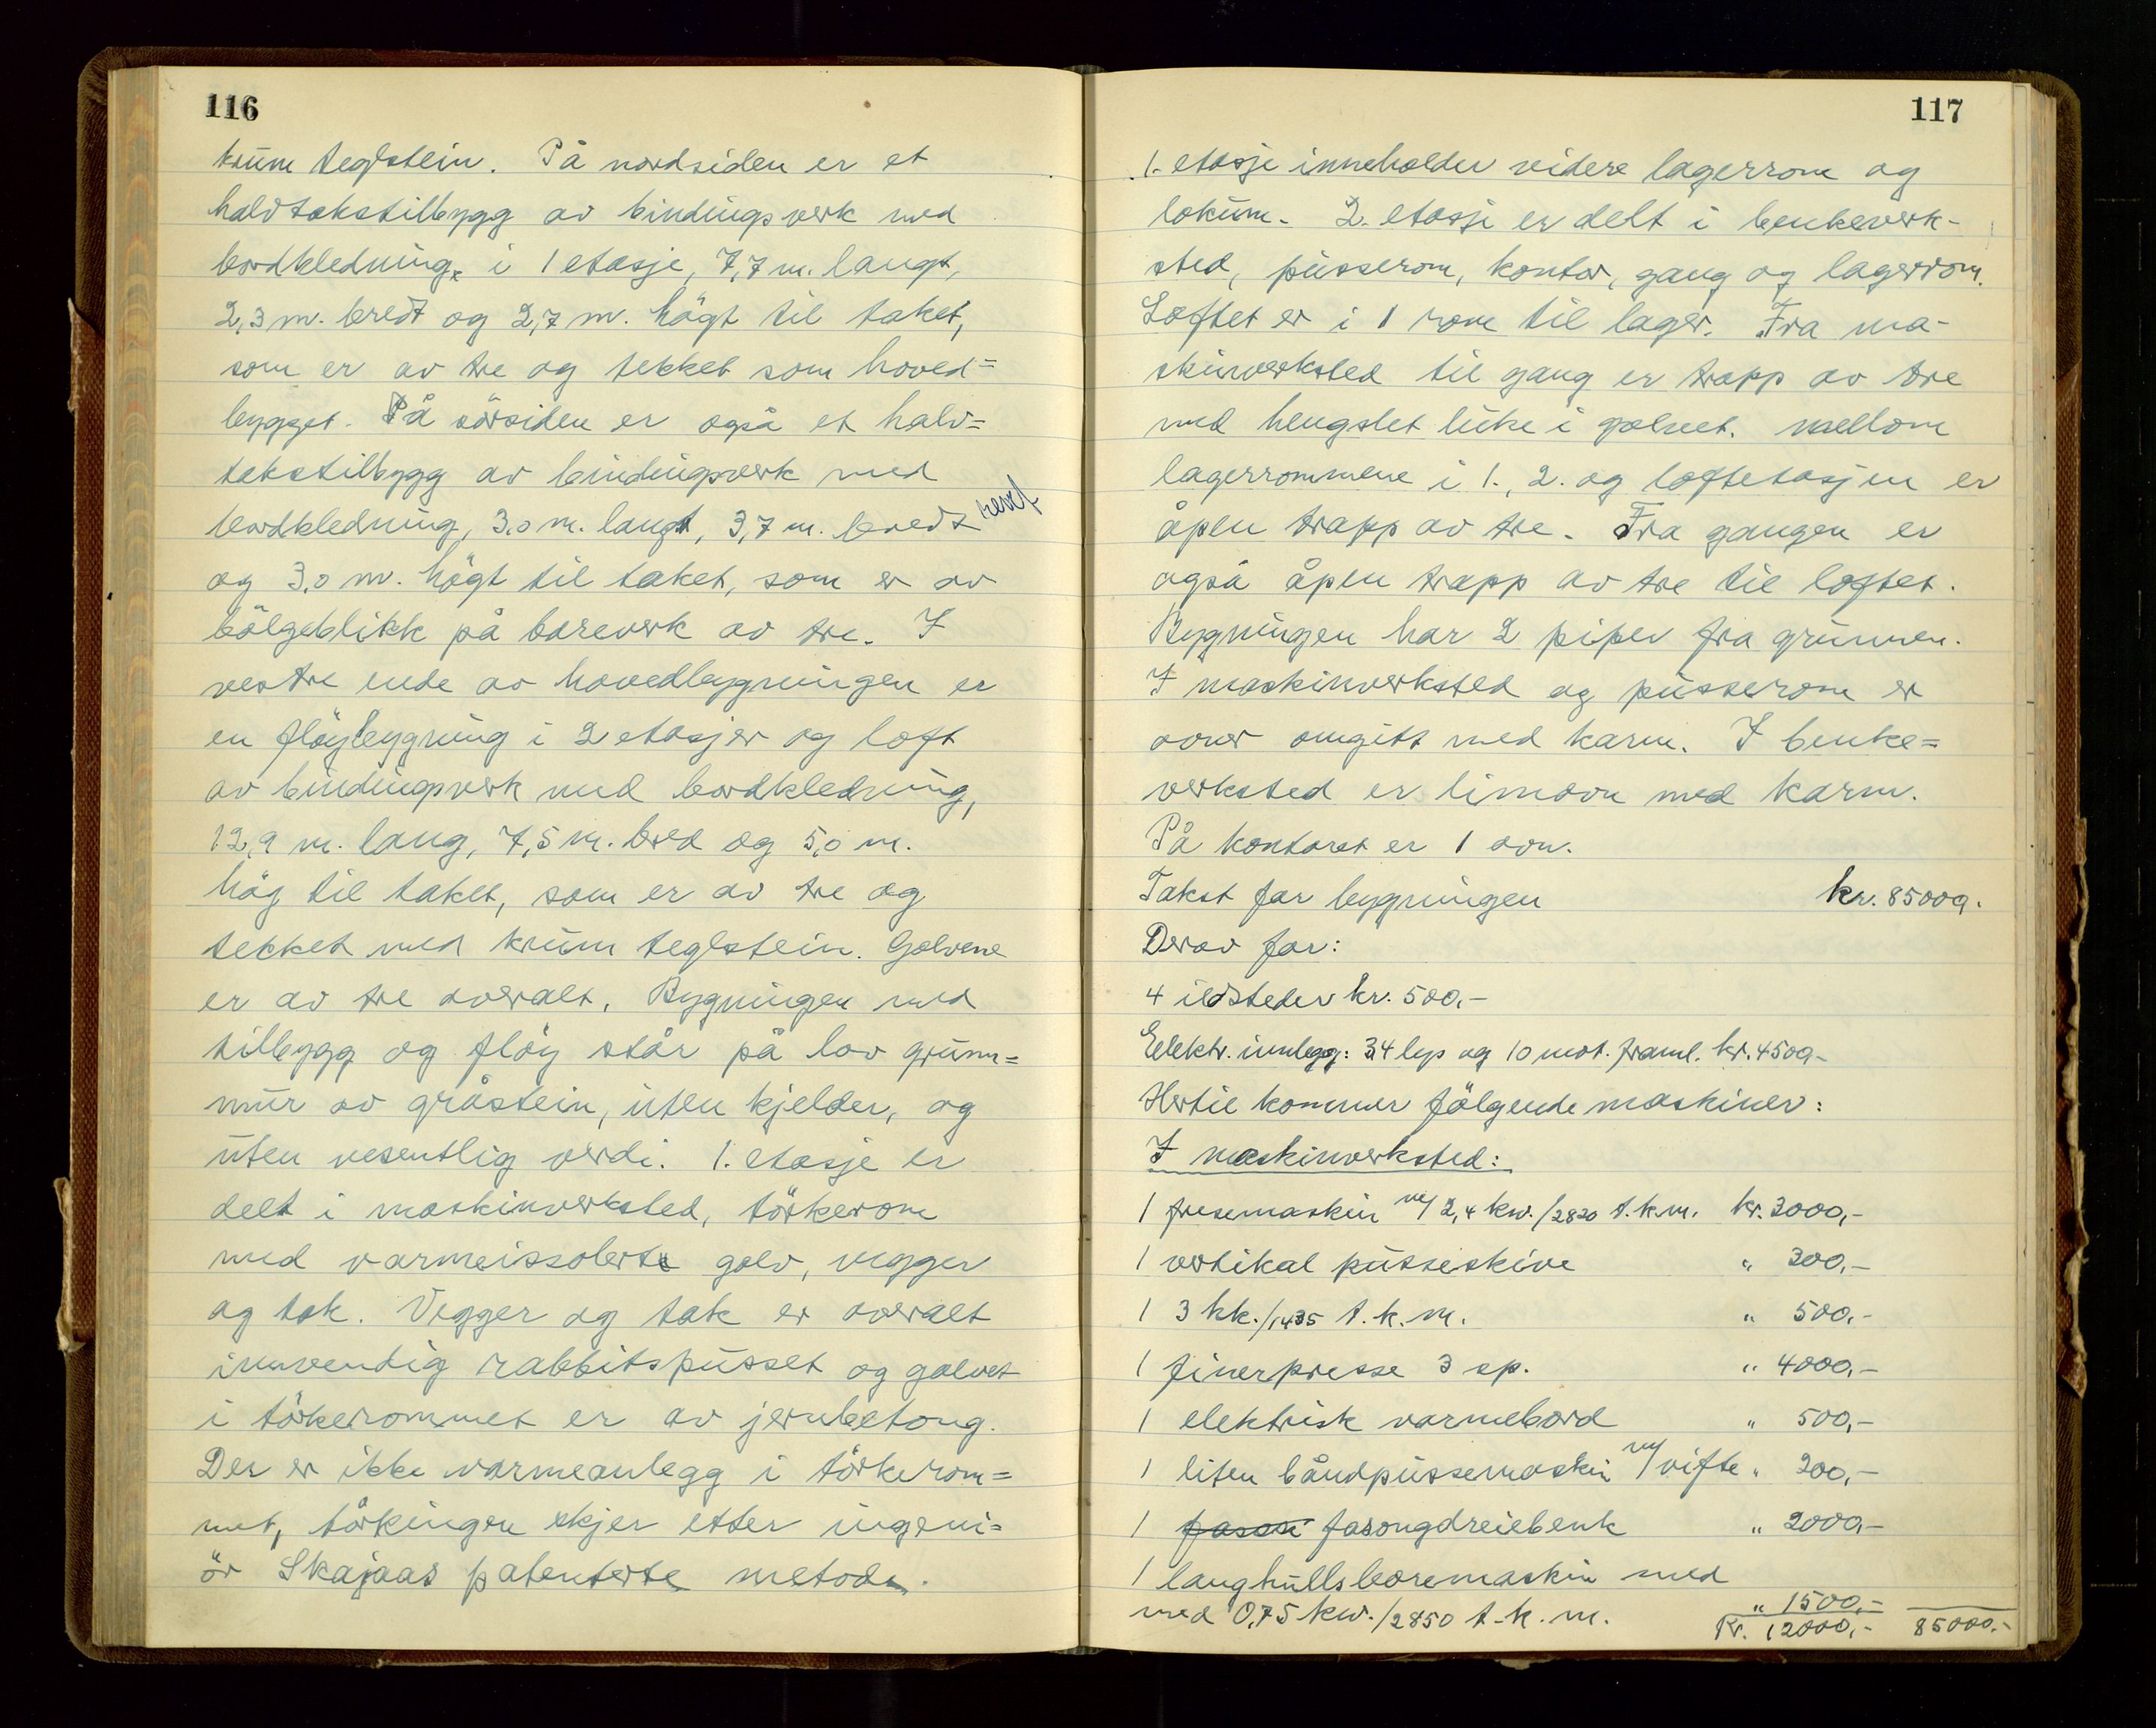 116
krum teglstein. På nordsiden er et
halvtakstilbygg av bindingsverk med
bordkledning, i 1 etasje, 7,7 m. langt,
2,3 m. bredt og 2,7 m. högt til taket,
som er av tre og tekket som hoved=
bygget. På sörsiden er også et halv=
takstilbygg av bindingsverk med
bordkledning, 3,0 m. langt, 3,7 m. bredt
og 3,0 m. högt til taket, som er av
bölgeblikk på bareverk av tre. I
vestre ende av hovedbygningen er
en flöybygning i 2 etasjer og loft
av bindingsverk med bordkledning,
12,9 m. lang, 7,5 m. bred og 5,0 m.
hög til taket, som er av tre og
tekket med krum teglstein. Golvene
er av tre overalt. Bygningen med
tilbygg og flöy står på lav grunn=
mur av gråstein, uten kjelder, og
uten vesentlig verdi. 1. etasje er
delt i maskinverksted, törkerom
med varmeissolerte golv, vegger
og tak. Vegger og tak er overalt
innvendig rabbitspusset og golvet
i törkerommet er av jernbetong.
Der er ikke varmeanlegg i törkerom=
met, törkingen skjer etter ingeni=
ör Skajaas patenterte metode.
117
1. etasje inneholder videre lagerrom og
lokum. 2. etasje er delt i benkeverk-
sted, pusserom, kontor, gang og lagerrom.
Loftet er i 1 rom til lager. Fra ma-
skinverksted til gang er trapp av tre
med hengslet luke i golvet. Mellom
lagerrommene i 1., 2. og loftetasjen er
åpen trapp av tre. Fra gangen er
også åpen trapp av tre til loftet.
Bygningen har 2 piper fra grunnen.
I maskinverksted og pusserom er
ovner omgitt med karm. I benke=
verksted er limovn med karm.
På kontoret er 1 ovn.
Takst for bygningen kr. 85000.
Derav for:
4 ildsteder kr. 500,-
Eelektr. innlegg: 34 lys og 10 mot. framl. kr. 4500-
Hertil kommer fölgende maskiner:
I maskinverksted:
1 fresemaskin m/ 2,4 kw./2820 t.k.m. kr. 3000,-
1 vertikal pusseskive " 300,-
1 3 hk./1435 t.k.m. " 500,-
1 finerpresse 3 sp. " 4000,-
1 elektrisk varmebord " 500,-
1 liten båndpussemaskin m/vifte " 200,-
1 fasson fasongdreiebenk " 2000,-
1 langhullsboremaskin med
med 0,75 kw./2850 t.k.m. " 1500,-
Kr. 12000,- 85000.-